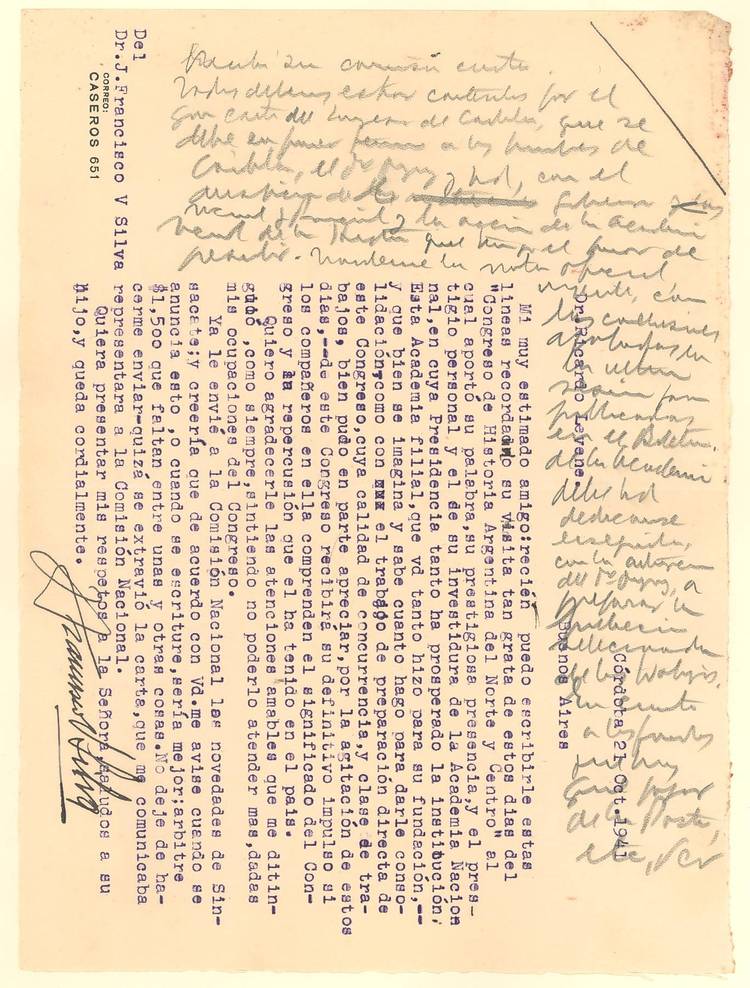 Del
Dr. J. Francisco V Silva
CORREO:
CASEROS 651
Córdoba 21 Oct. 1941
Dr. Ricardo Levene.
Buenos Aires
Mi muy estimado amigo: recién puedo escribirle estas
líneas recordando su visita tan grata de estos días del
"Congreso de Historia Argentina del Norte y Centro" al
cual aportó su palabra, su prestigiosa presencia, y el pres-
tigio personal y el de su investidura de la Academia Nacion
nal, en cuya Presidencia tanto ha prosperado la institución,
Esta Academia filial, que vd tanto hizo para su fundación,--
y que bien se imagina y sabe cuanto hago para darle conso-
lidación, como con el trabajo de preparación directa de
este Congreso, cuya calidad de concurrencia, y clase de tra-
bajos, bien pudo en parte apreciar, por la agitación de estos
días,--de este Congreso recibirá su definitivo impulso si
los compañeros en ella comprenden el significado del Con-
greso y la repercusión que el ha tenido en el país.
Quiero agradecerle las atenciones amables que me ditin-
guió, como siempre, sintiendo no poderlo atender mas, dadas
mis ocupaciones del Congreso.
Ya le envié a la Comisión Nacional las novedades de Sin-
sacate; y creería que de acuerdo con Vd. me avise cuando se
anuncia esto, o cuando se escriture, sería mejor; arbitre
$1,500 que faltan entre unas y otras cosas. No deje de ha-
cerme enviar-quizá se extravió la carta, que me comunicaba
representara a la Comisión Nacional.
Quiera presentar mis respetos a la Señora, saludos a su
hijo, y queda cordialmente.
Recibí su carta
Vdes deben estar contentos por el
gran del Congreso de Córdoba, que se
debe en primer a los hombres de
Córdoba, el y Vd, con el
de Gobierno
y la acción de la Academia
Nacional de la Historia que tengo el honor de
presidir. la nota oficial
con
las conclusiones
aprobadas en
la última
sesión para
publicarlas
en el Boletín
de la Academia
debe Vd
dedicarse
enseguida,
con la
del a
preparar la
publicación
de los trabajos.